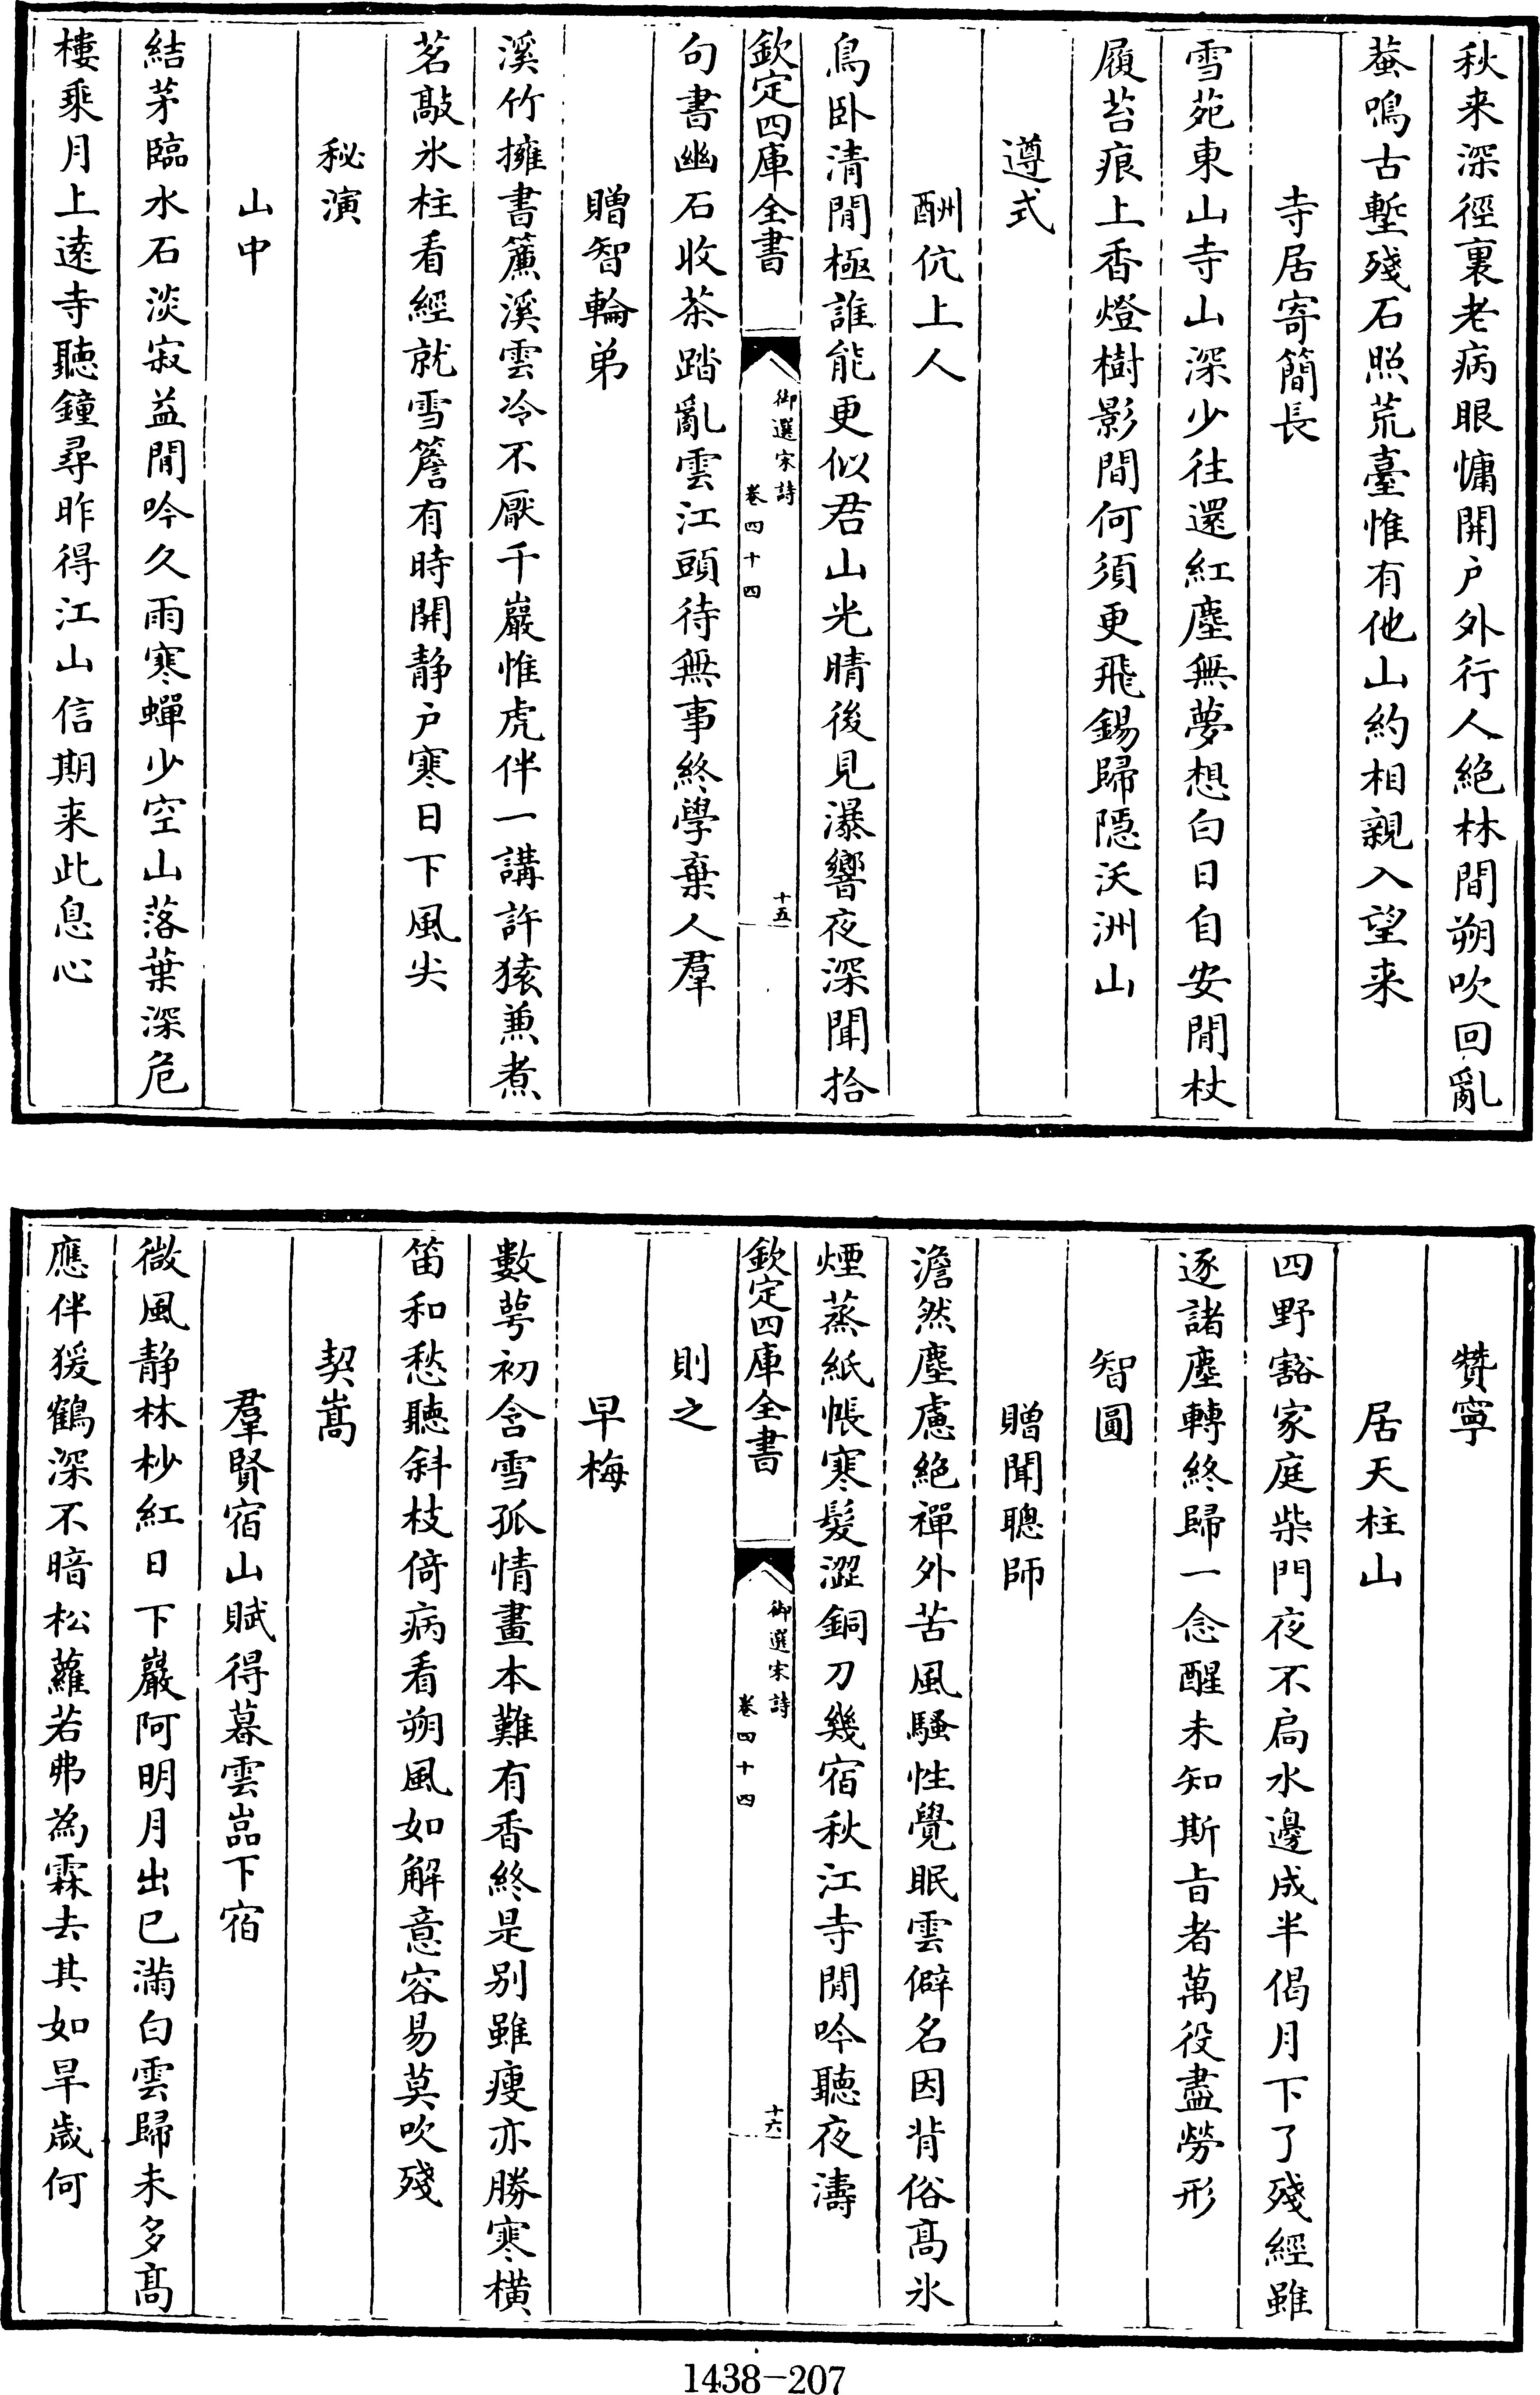 秋来深徑裏老病眼慵開户外行人絶林間朔吹回亂
蛬鳴古塹殘石照荒臺惟有他山約相親入望来
寺居寄簡長
雪苑東山寺山深少往還紅塵無夢想白日自安閒杖
履苔痕上香燈樹影間何須更飛錫歸隱沃洲山
遵式
酬伉上人
鳥卧清閒極誰能更似君山光晴後見瀑響夜深聞拾
欽定四庫全書
御選宋詩
卷四十四
十五
句書幽石收茶踏亂雲江頭待無事終學棄人羣
贈智輪弟
溪竹擁書簾溪雲冷不厭千巖惟虎伴一講許猿兼煮
茗敲氷柱看經就雪簷有時開静户寒日下風尖
秘演
山中
結茅臨水石淡寂益閒吟久雨寒蟬少空山落葉深危
樓乘月上遠寺聽鐘尋昨得江山信期来此息心
贊寧
居天柱山
四野豁家庭柴門夜不扃水邊成半偈月下了殘經雖
逐諸塵轉終歸一念醒未知斯旨者萬役盡勞形
智圓
贈聞聰師
澹然塵慮絶禪外苦風騷性覺眠雲僻名因背俗髙氷
煙蒸紙帳寒髮澀銅刀幾宿秋江寺閒吟聽夜濤
欽定四庫全書
御選宋詩
卷四十四
十六
則之
早梅
數萼初含雪孤情畫本難有香終是别雖瘦亦勝寒横
笛和愁聽斜枝倚病看朔風如解意容易莫吹殘
契嵩
羣賢宿山賦得暮雲嵓下宿
微風静林杪紅日下巖阿明月出已滿白雲歸未多髙
應伴猨鶴深不暗松蘿若弗為霖去其如旱歲何
1438-207